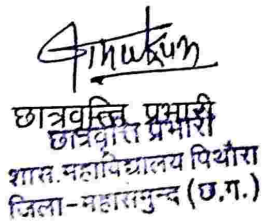 छात्रवृत्ति प्रभारी
छात्रवृत्ति प्रभारी
शास. महाविद्यालय पिथौरा
जिला-महासमुन्द (छ.ग.)